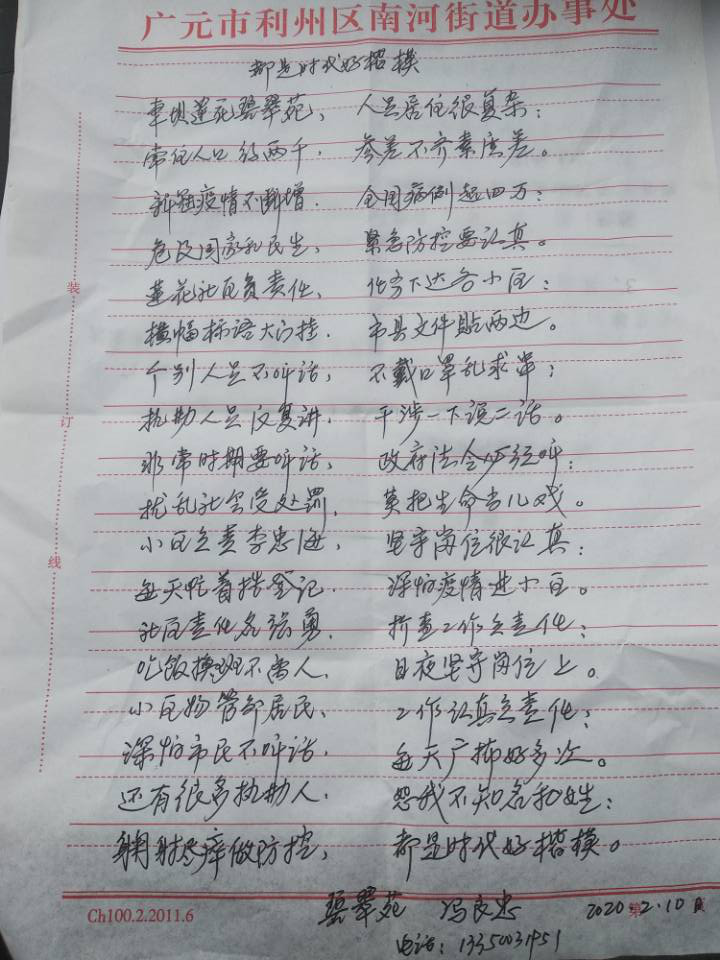 广元市利州区南河街道办事处
都是时代好楷模
人员居住很复杂;
常住人口约两千, 参差不齐素质差。
新冠疫情不断增, 全国病例超四万;
危及国家和民生, 紧急防控要认真。
莲花社区负责任, 任务下达各小区;
横幅标语大门挂, 市县文件贴两边。
个别人员不听话, 不戴口罩乱求串;
执勤人员反复讲, 干涉一下说二话。
非常时期要听话, 政府法令必须听;
扰乱社会受处罚, 莫把生命当儿戏。
小区负责李忠海, 坚守岗位很认真;
每天忙着搞登记, 深怕疫情进小区。
社区责任名强勇, 排查工作负责任;
吃饭换班不离人, 日夜坚守岗位上。
小区物管邹居民, 工作认真负责任;
深怕市民不听话, 每天广播好多次。
还有很多执勤人, 恕我不知名和姓;
鞠躬尽瘁做防控, 都是时代好楷模。
碧翠苑 冯良忠 2020.2.10
电话: 13350031951
装
订
线
Ch100.2.2011.6
第 页